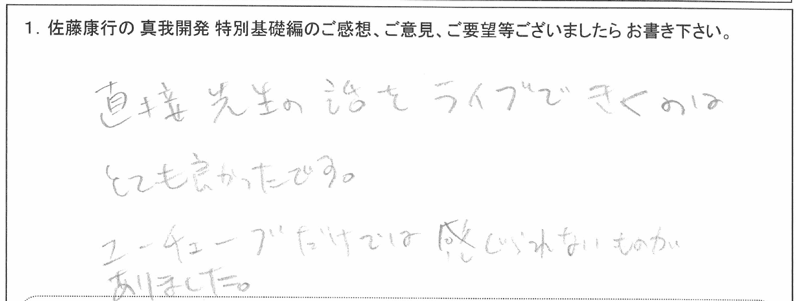 1. 佐藤康行の 真我開発 特別基礎編のご感想、ご意見、ご要望等ございましたら お書き下さい。
直接 先生の 話を ライブで きくのは
とても良かったです。
ユーチューブだけでは 感じられないものが
ありました。